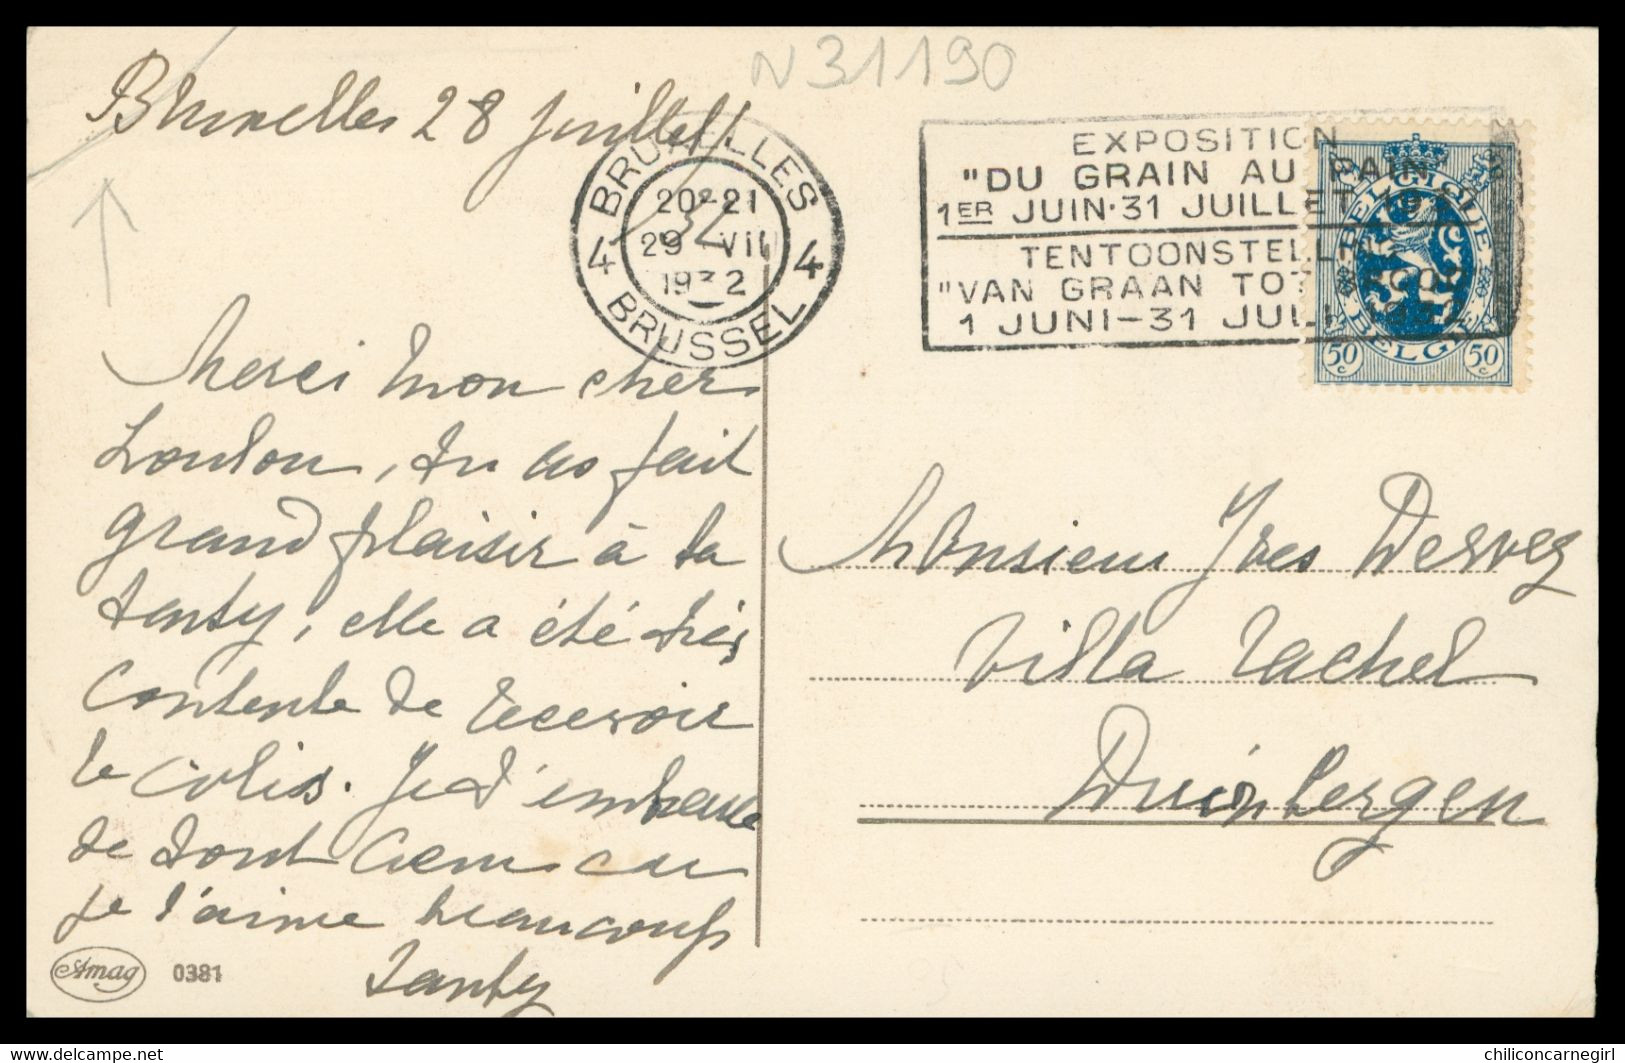 N31190
Bruxelles 28 juillet
32
BRUXELLES
4 4
20-21
29 VII
1932
BRUSSEL
EXPOSITION
"DU GRAIN AU PAIN"
1ER JUIN·31 JUILLET 1932
TENTOONSTELLING
"VAN GRAAN TOT BROOD"
1 JUNI-31 JULI 1932
BELGIQUE
BELGIE
50 c 50 c
Merci mon cher
Loulou, tu as fait
grand plaisir à ta
tanty, elle a été très
contente de recevoir
le colis. Je t'embrasse
de tout cœur car
je t'aime beaucoup
Tanty
Monsieur Yves
Villa Rachel
Duinbergen
Amag 0381
delcampe.net
chiliconcarnegirl